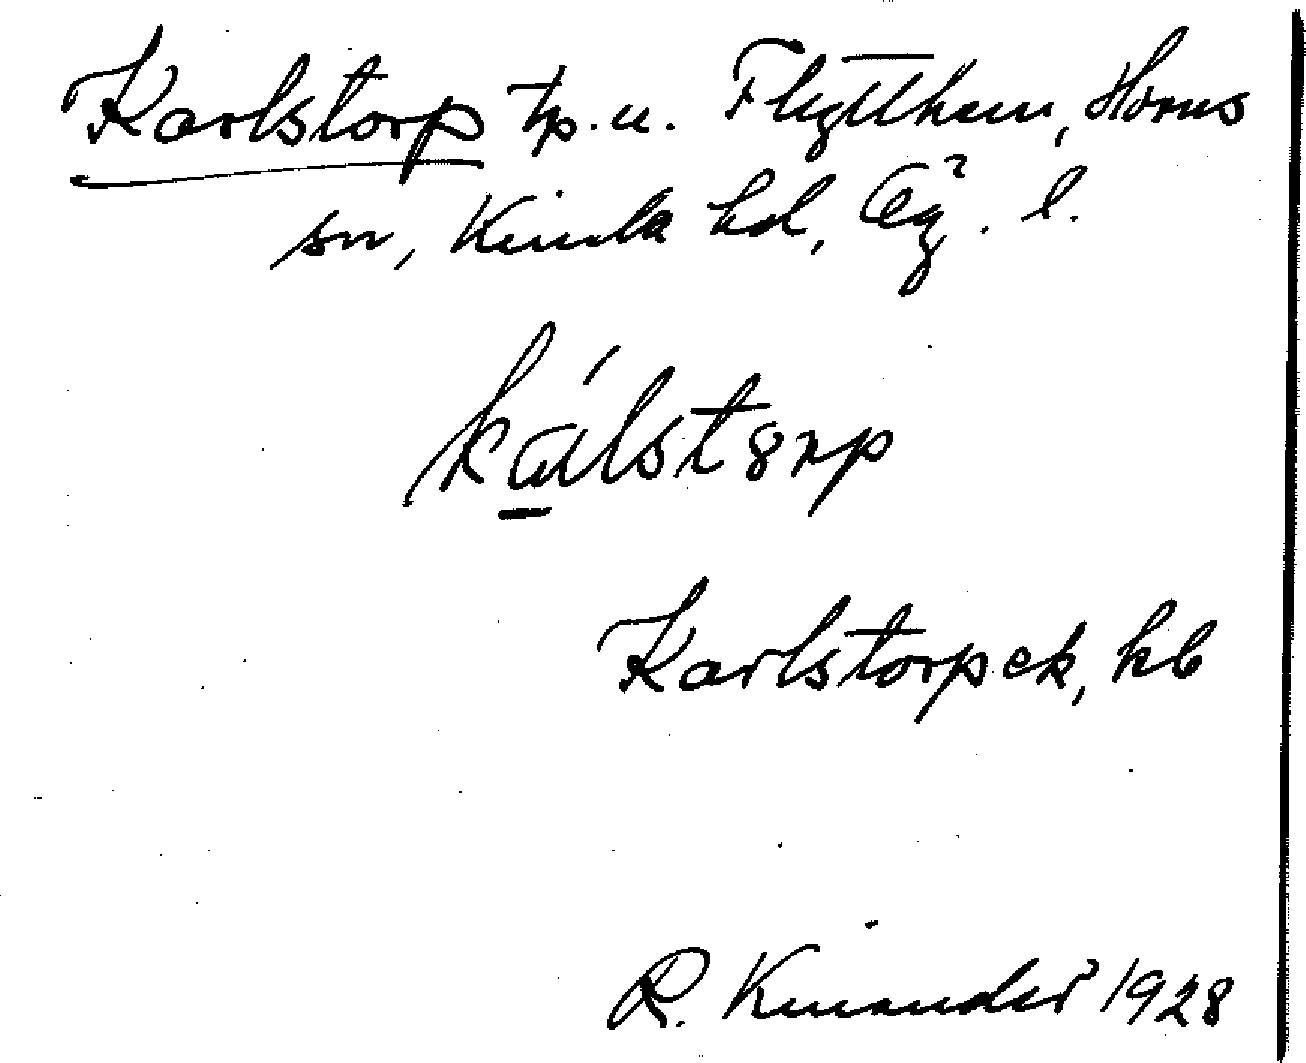 Karlstorp tp. u. Flytthem, Horns
sn, Kinda hd, Ög. l.
kálst8rp
Karlstorp ek, kb
R. Kinander 1928